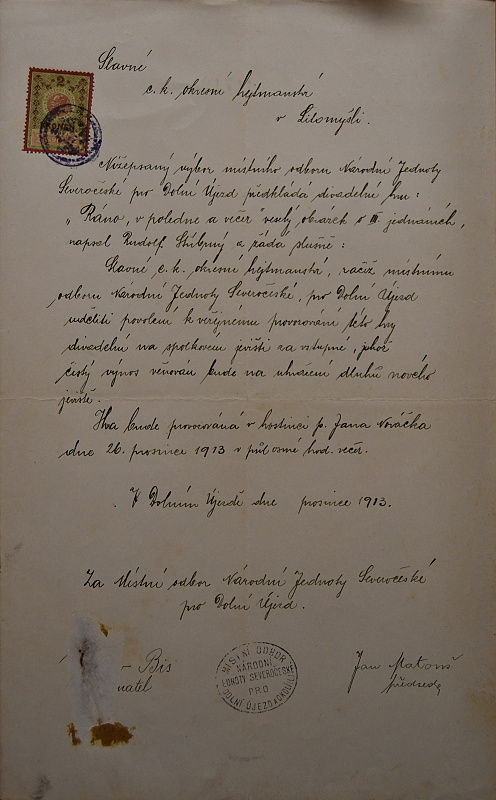 Slavné
c. k. okresní hejtmanství
v Litomyšli.
Nížepsaný výbor místního odboru Národní Jednoty
Severočeské pro Dolní Újezd předkládá divadelní hru:
„Ráno, v poledne a večer" veselý obrázek o III jednáních,
napsal Rudolf Stříbrný a žádá slušně:
Slavné c. k. okresní hejtmanství, račiž místnímu
odboru Národní Jednoty Severočeské, pro Dolní Újezd
uděliti povolení k veřejnému provozování této hry
divadelní na spolkovém jevišti za vstupné, jehož
čistý výnos věnován bude na uhražení dluhů nového
jeviště.
Hra bude provozována v hostinci p. Jana Nováčka
dne 26. prosince 1913 v půl osmé hod. večer.
V Dolním Újezdě dne prosince 1913.
Za Místní odbor Národní Jednoty Severočeské
pro Dolní Újezd.
Bis
natel
MÍSTNÍ ODBOR
NÁRODNÍ
JEDNOTY SEVEROČESKÉ
PRO
DOLNÍ ÚJEZD
Jan
předseda
2